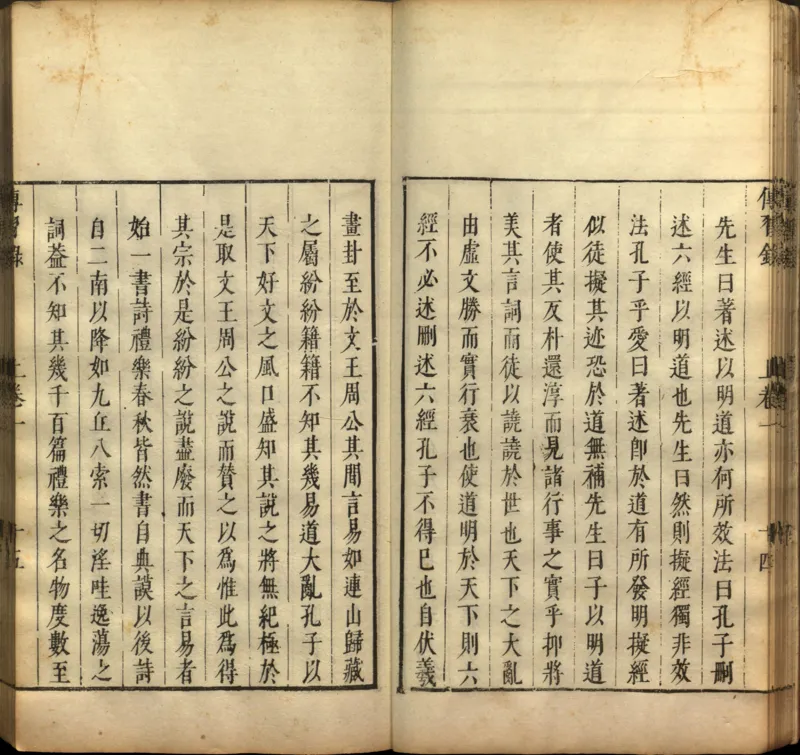 傳習錄
上卷一
十四
先生曰著述以明道亦何所效法曰孔子刪
述六經以明道也先生曰然則擬經獨非效
法孔子乎愛曰著述卽於道有所發明擬經
似徒擬其迹恐於道無補先生曰子以明道
者使其反朴還淳而見諸行事之實乎抑將
美其言詞而徒以譊譊於世也天下之大亂
由虛文勝而實行衰也使道明於天下則六
經不必述刪述六經孔子不得巳也自伏羲
畫卦至於文王周公其間言易如連山歸藏
之屬紛紛籍籍不知其幾易道大亂孔子以
天下好文之風日盛知其說之將無紀極於
是取文王周公之說而贊之以爲惟此爲得
其宗於是紛紛之說盡廢而天下之言易者
始一書詩禮樂春秋皆然書自典謨以後詩
自二南以降如九丘八索一切淫哇逸蕩之
詞葢不知其幾千百篇禮樂之名物度數至
傳習錄
上卷一
十五